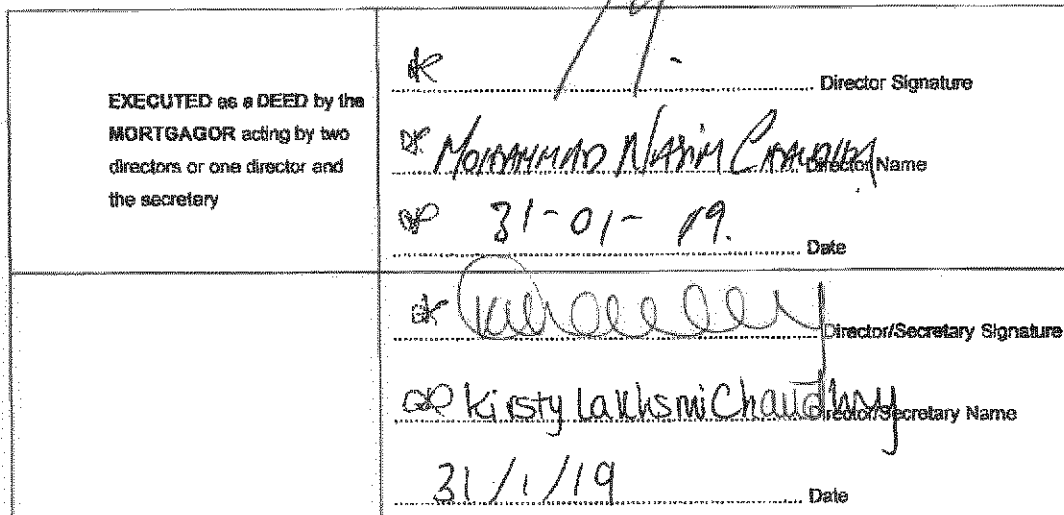 EXECUTED as a DEED by the
MORTGAGOR acting by two
directors or one director and
the secretary
Director Signature
MOHAMMAD NASIM Director Name
31-01-19. Date
Director/Secretary Signature
Kirsty Lakhsmi Chaudhry Director/Secretary Name
31/1/19 Date